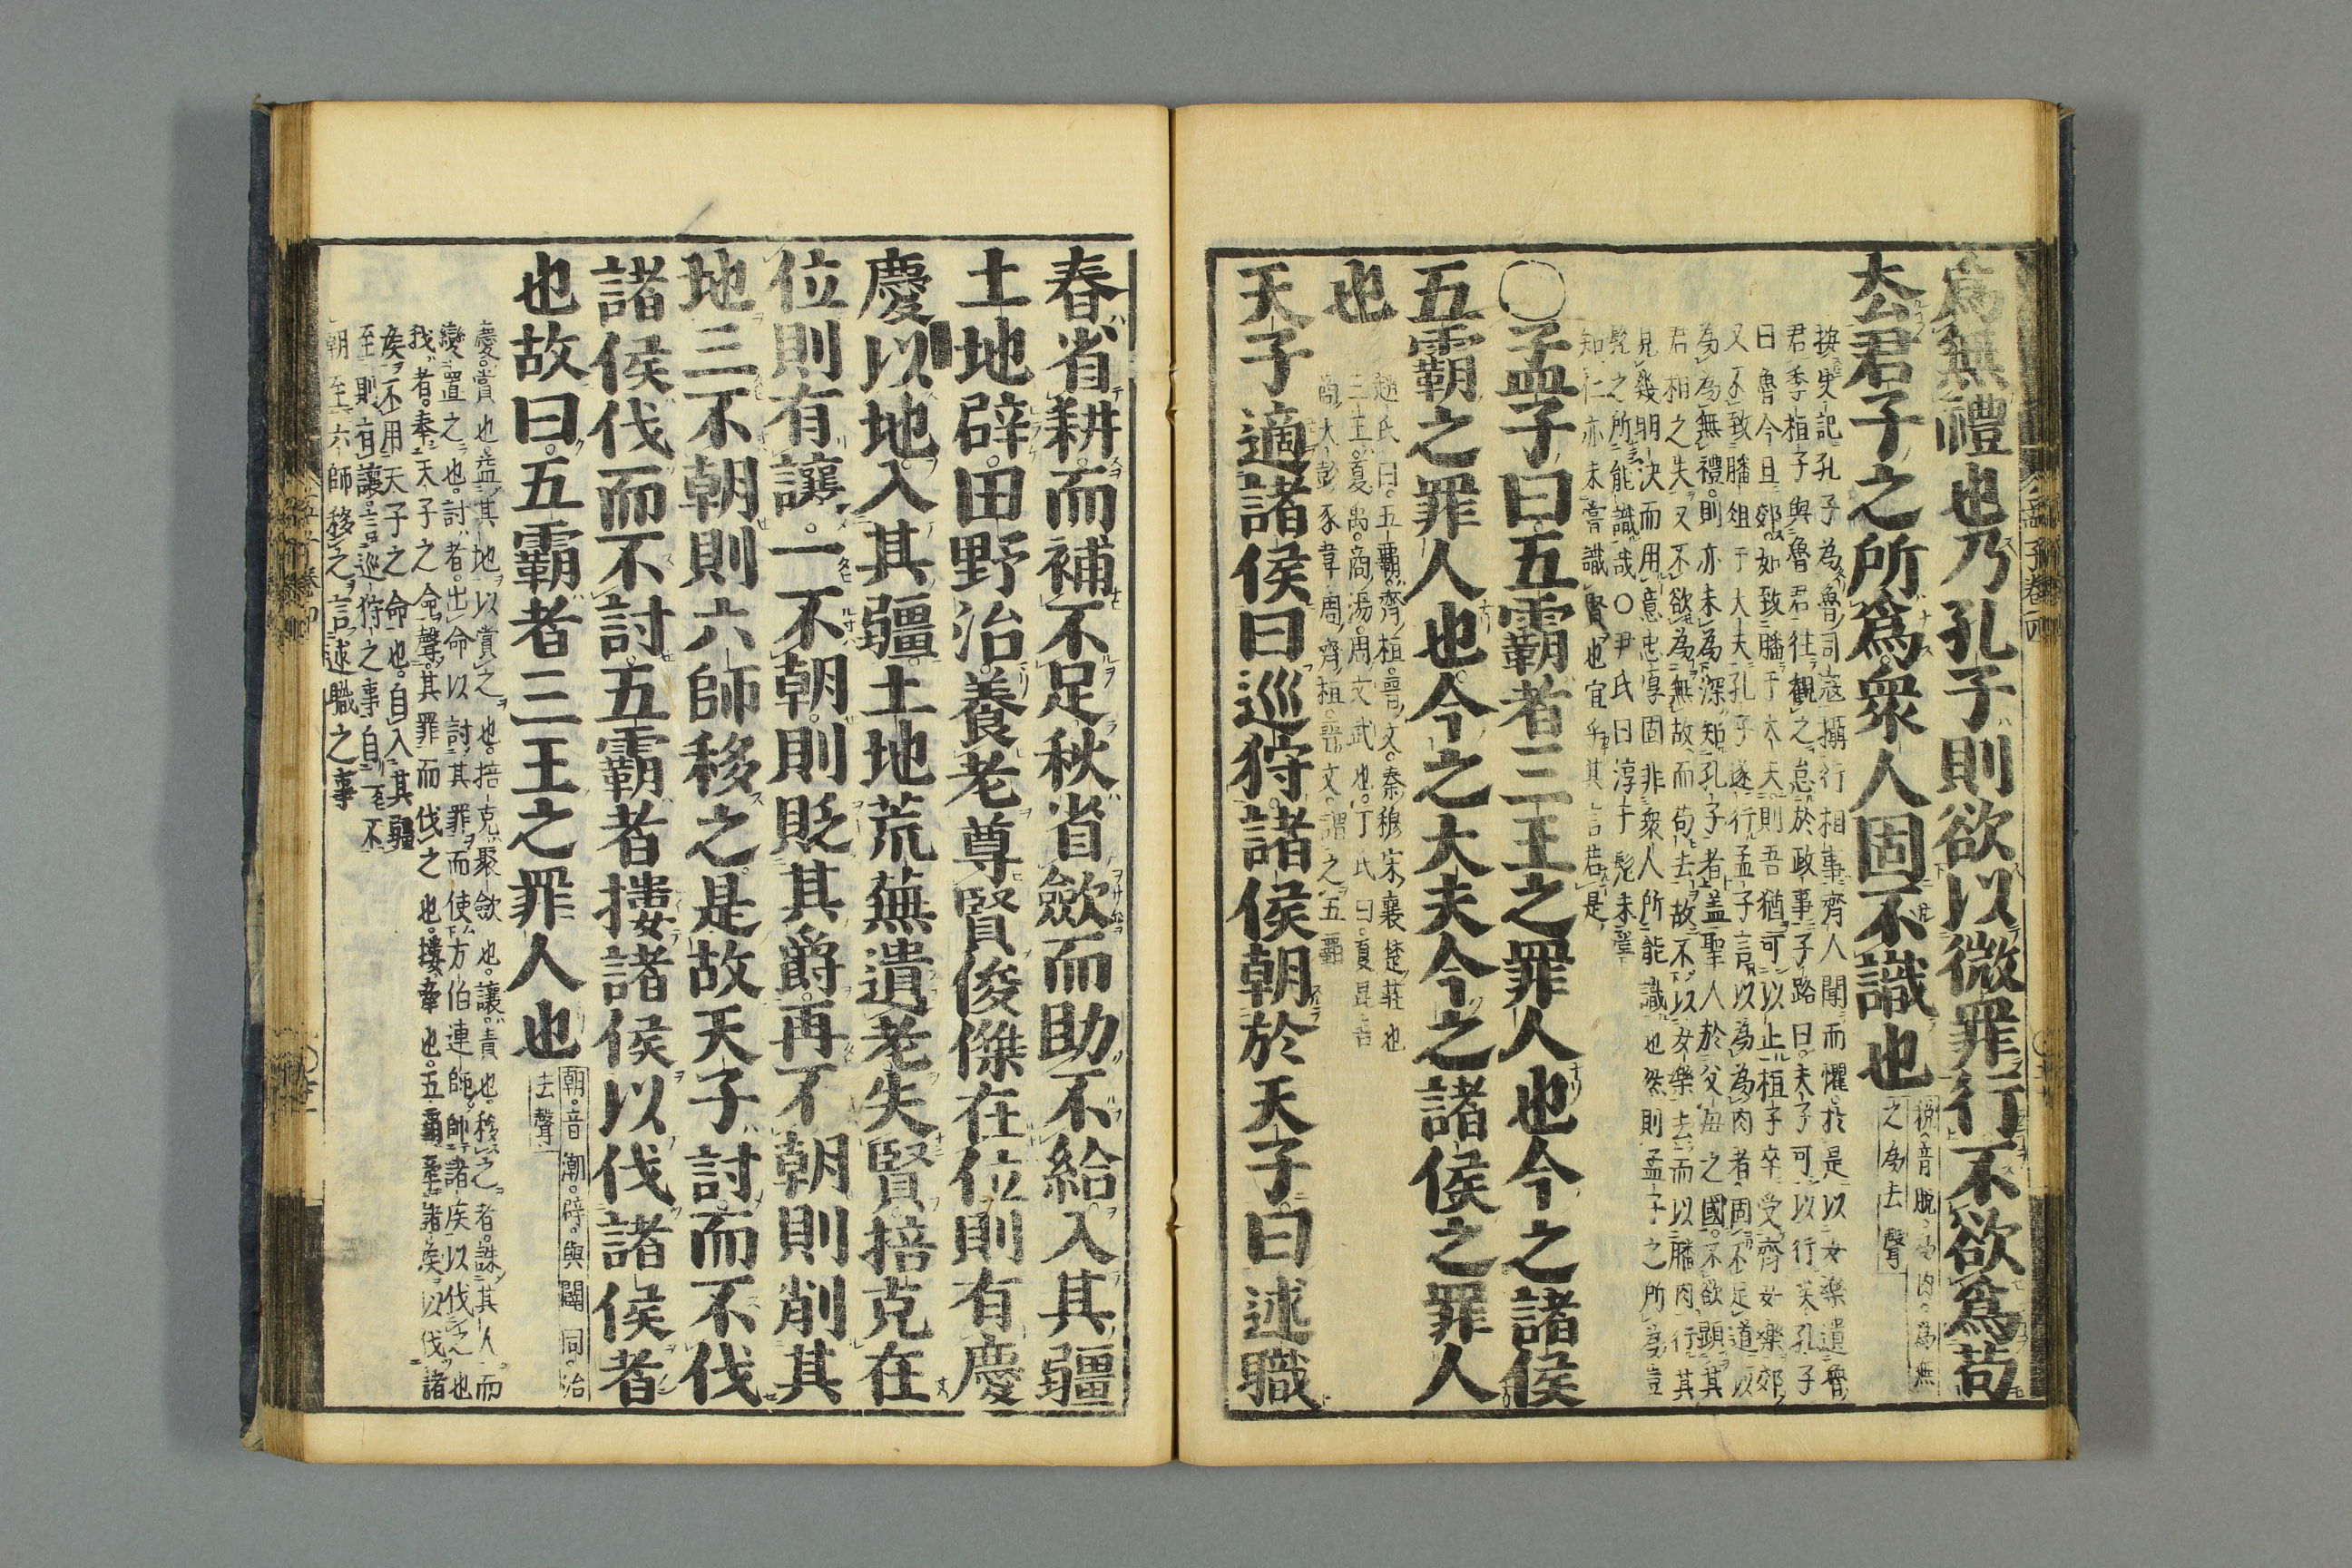 爲無禮也乃孔子則欲以微罪行不欲爲苟
去君子之所爲衆人固不識也
稅音脫爲肉爲無
之爲去聲
按史記孔子為魯司寇攝行相事齊人聞而懼於是以女樂遺魯
君季桓子與魯君往觀之怠於政事子路曰夫子可以行矣孔子
曰魯今且郊如致膰于大夫則吾猶可以止桓子卒受齊女樂郊
又不致膰俎于大夫孔子遂行孟子言以為為肉者固不足道以
為為無禮則亦未為深知孔子者蓋聖人於父母之國不欲顯其
君相之失又不欲為無故而苟去故不以女樂去而以膰肉行其
見幾明決而用意忠厚固非衆人所能識也然則孟子之所為豈
髡之所能識哉○尹氏曰淳于髡未嘗
知仁亦未嘗識賢也宜乎其言若是
○孟子曰五霸者三王之罪人也今之諸侯
五霸之罪人也今之大夫今之諸侯之罪人
也
趙氏曰五霸齊桓晉文秦穆宋襄楚莊也
三王夏禹商湯周文武也丁氏曰夏昆吾
商大彭豕韋周齊桓晉文謂之五霸
天子適諸侯曰巡狩諸侯朝於天子曰述職
春省耕而補不足秋省斂而助不給入其疆
土地辟田野治養老尊賢俊傑在位則有慶
慶以地入其疆土地荒蕪遺老失賢掊克在
位則有讓一不朝則貶其爵再不朝則削其
地三不朝則六師移之是故天子討而不伐
諸侯伐而不討五霸者摟諸侯以伐諸侯者
也故曰五霸者三王之罪人也
朝音潮辟與闢同治
去聲
慶賞也益其地以賞之也掊克聚斂也讓責也移之者誅其人而
變置之也討者出命以討其罪而使方伯連帥帥諸侯以伐之也
伐者奉天子之命聲其罪而伐之也摟牽也五霸牽諸侯以伐諸
侯不用天子之命也自入其疆
至則有讓言巡狩之事自一不
朝至六師移之言述職之事